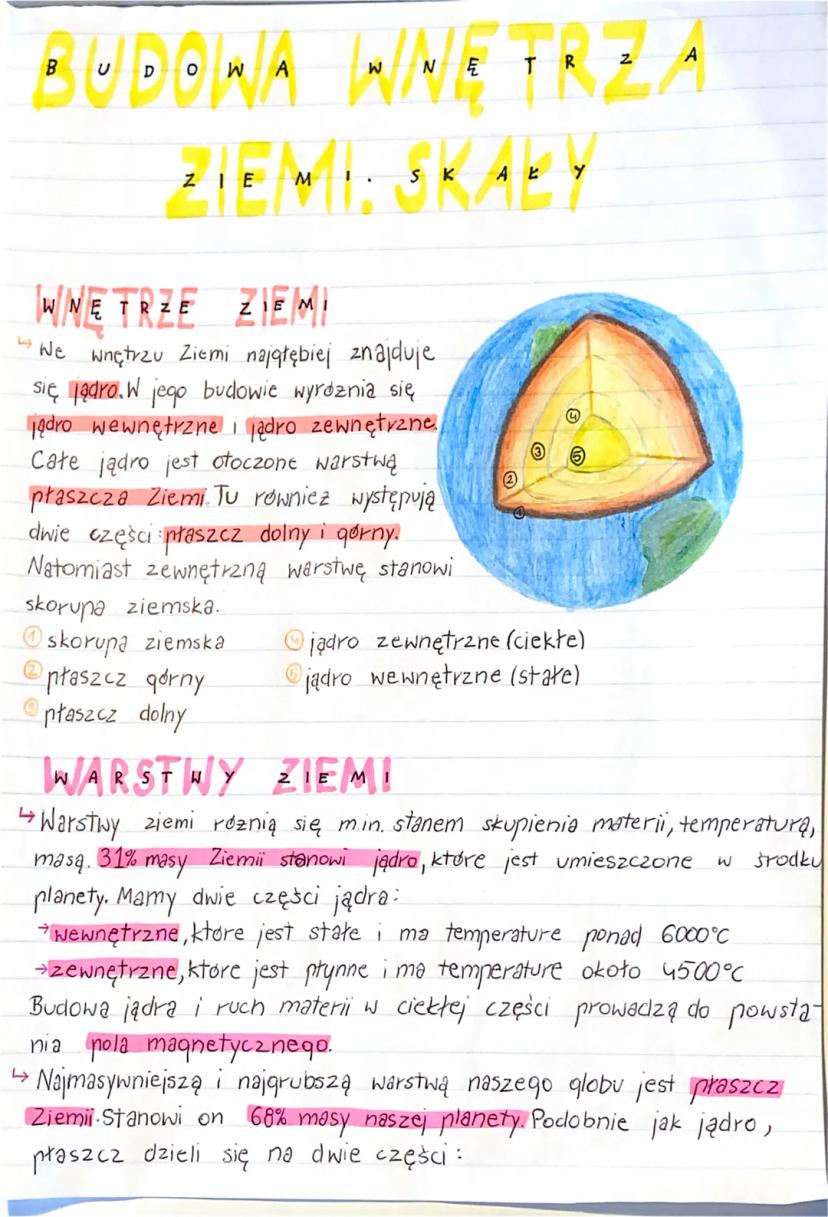 BUDOWA WNĘTRZA
ZIEMI. SKAŁY
WNĘTRZE ZIEMI
↳ We wnętrzu Ziemi najgłębiej znajduje
się jądro. W jego budowie wyróżnia się
jądro wewnętrzne i jądro zewnętrzne.
Całe jądro jest otoczone warstwą
płaszcza Ziemi. Tu również występują
dwie części: płaszcz dolny i górny.
Natomiast zewnętrzną warstwę stanowi
skorupa ziemska.
4
3
5
2
1
① skorupa ziemska ④ jądro zewnętrzne (ciekłe)
② płaszcz górny ⑤ jądro wewnętrzne (stałe)
③ płaszcz dolny
WARSTWY ZIEMI
↳ Warstwy ziemi róznią się m.in. stanem skupienia materii, temperaturą,
masą. 31% masy Ziemii stanowi jądro, które jest umieszczone w środku
planety. Mamy dwie części jądra:
→ wewnętrzne, które jest stałe i ma temperature ponad 6000°C
→ zewnętrzne, które jest płynne i ma temperature około 4500°C
Budowa jądra i ruch materii w ciekłej części prowadzą do powsta-
nia pola magnetycznego.
↳ Najmasywniejszą i najgrubszą warstwą naszego globu jest płaszcz
Ziemii. Stanowi on 68% masy naszej planety. Podobnie jak jądro,
płaszcz dzieli się na dwie części: